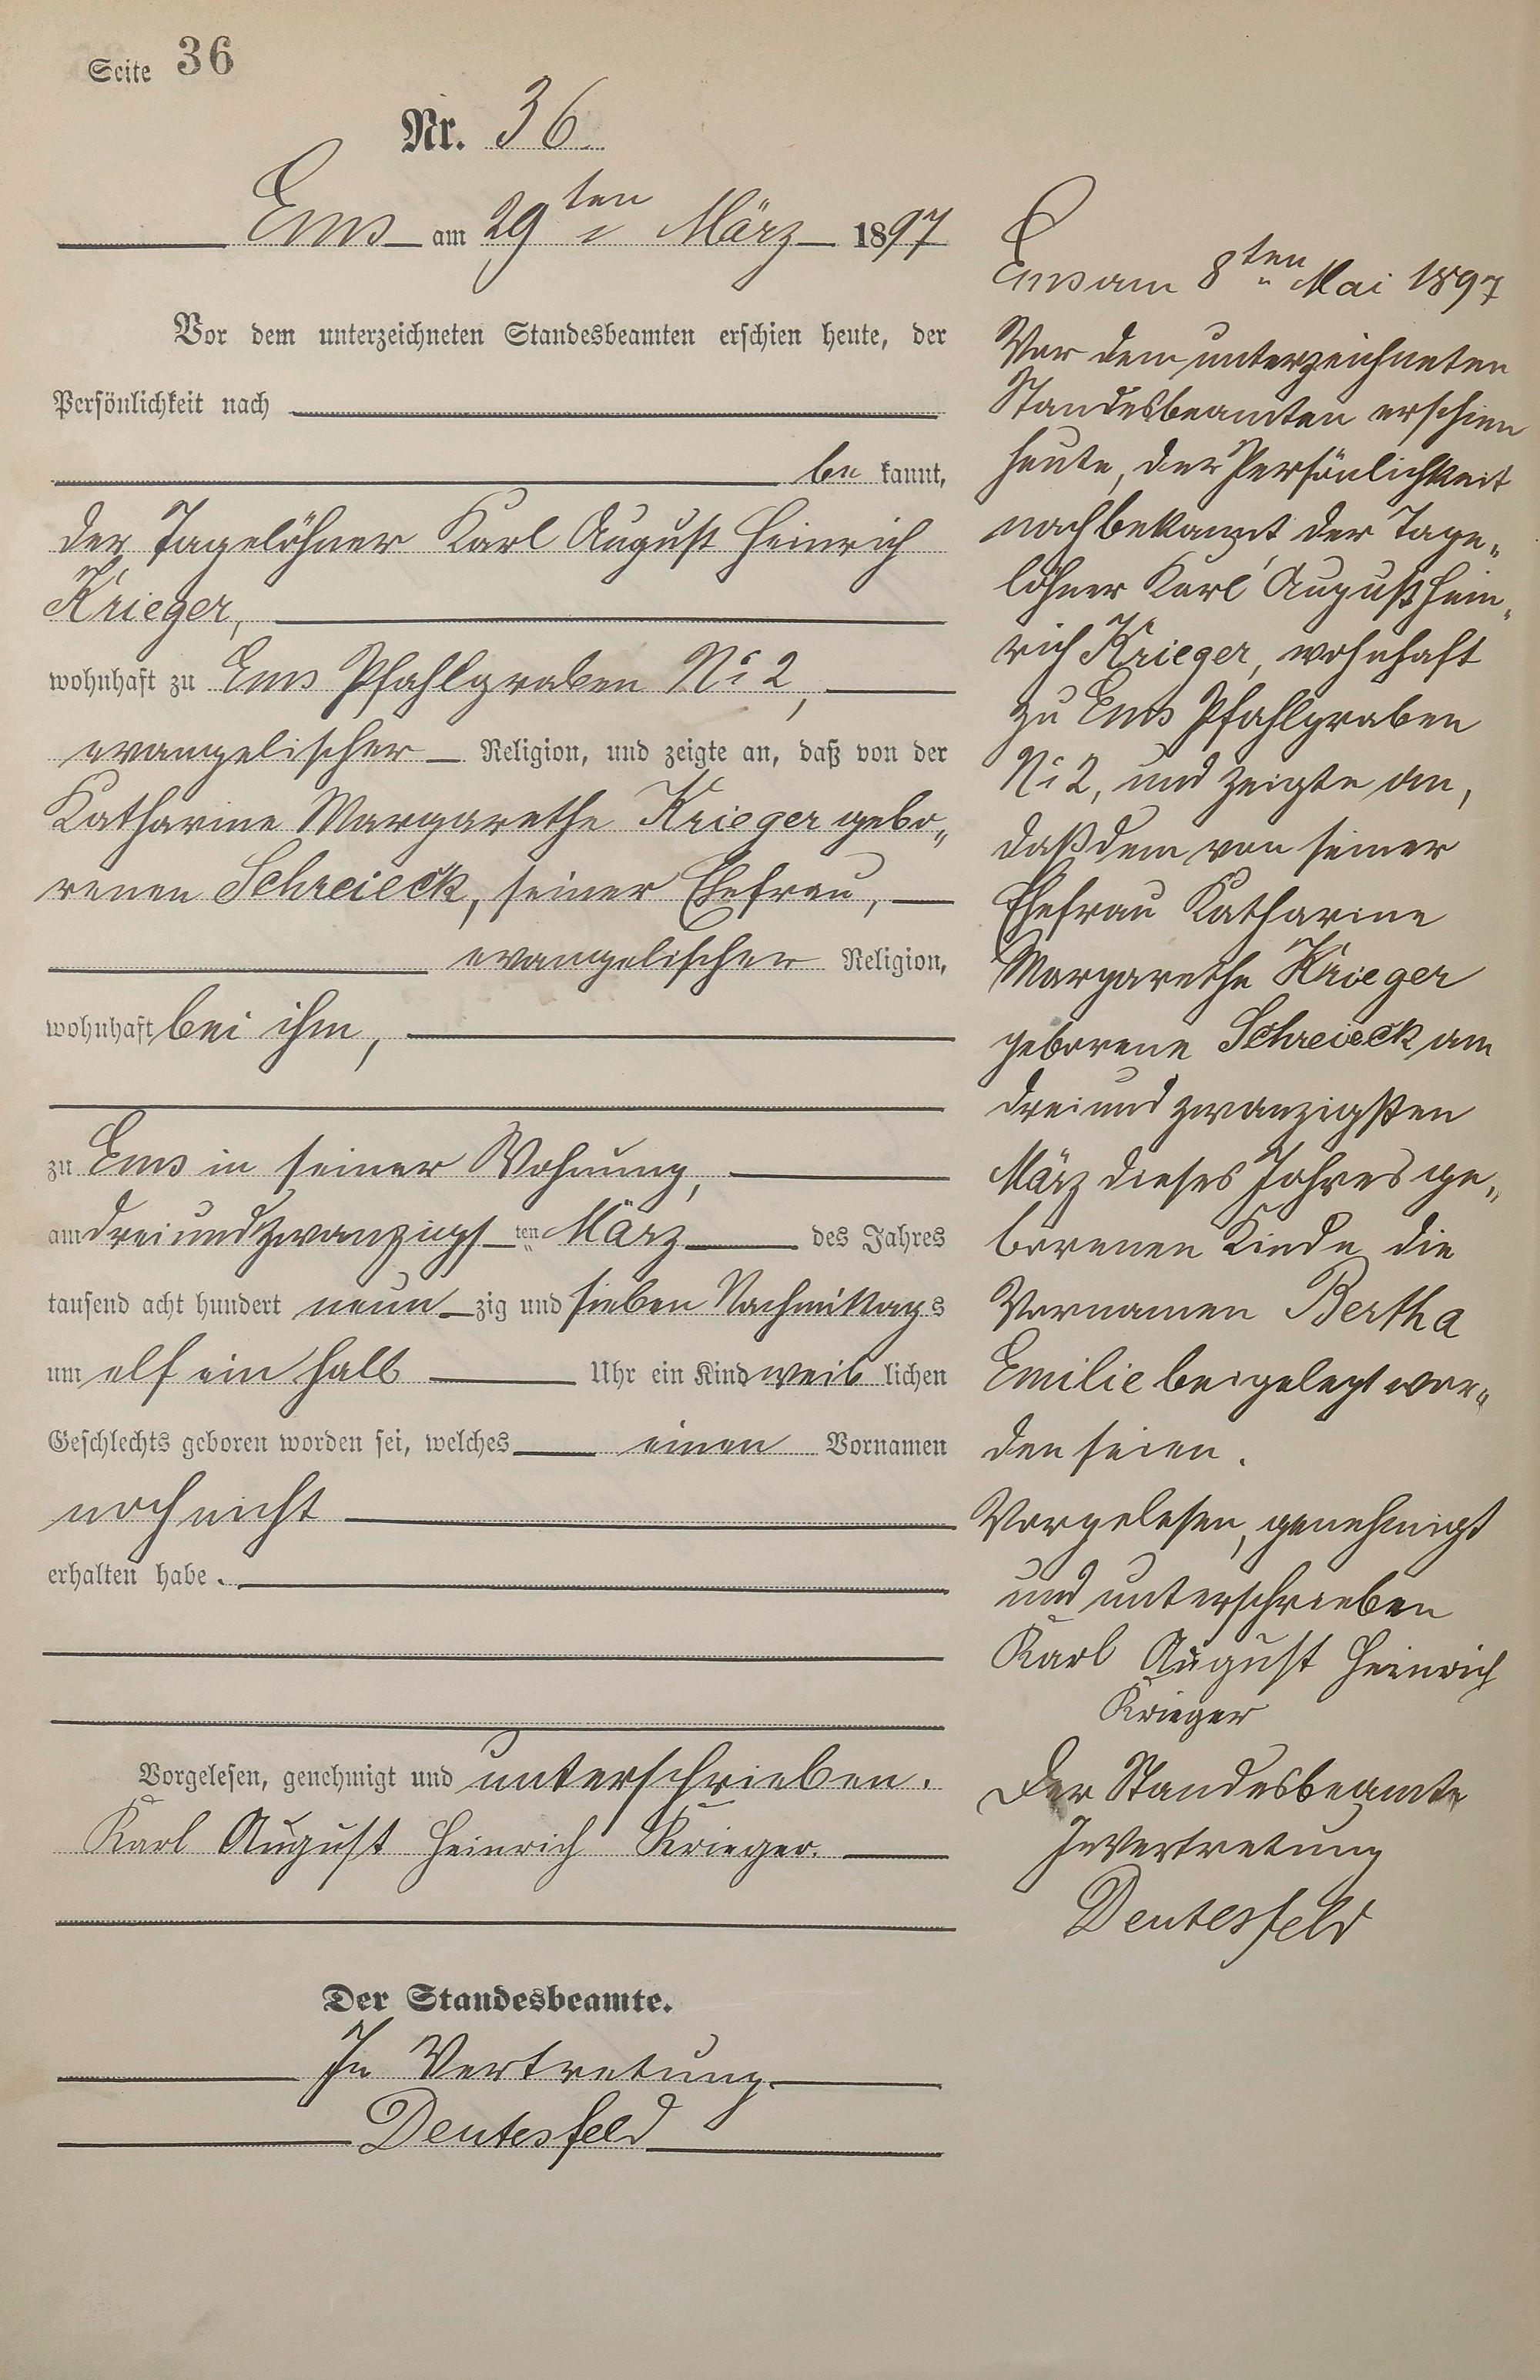 Seite 36
Nr. 36.
Ems am 29ten März 1897
Vor dem unterzeichneten Standesbeamten erschien heute, der
Persönlichkeit nach
be kannt,
der Tagelöhner Karl August Heinrich
Krieger,
wohnhaft zu Ems Pfahlgraben No 2,
evangelischer Religion, und zeigte an, daß von der
Katharine Margarethe Krieger gebo„
renen Schreieck, seiner Ehefrau,
evangelischer Religion,
wohnhaft bei ihm,
zu Ems in seiner Wohnung,
am dreiundzwanzigs ten März des Jahres
tausend acht hundert neun zig und sieben Nachmittags
um elf ein halb Uhr ein Kind weib lichen
Geschlechts geboren worden sei, welches einen Vornamen
noch nicht
erhalten habe.
Vorgelesen, genehmigt und unterschrieben.
Karl August Heinrich Krieger.
Der Standesbeamte.
In Vertretung
Deutesfeld
Ems am 8ten Mai 1897
Vor dem unterzeichneten
Standesbeamten erschien
heute, der Persönlichkeit
nach bekannt der Tage„
löhner Karl August Hein„
rich Krieger, wohnhaft
zu Ems Pfahlgraben
No 2, und zeigte an,
daß dem von seiner
Ehefrau Katharine
Margarethe Krieger
geborene Schreieck am
dreiundzwanzigsten
März dieses Jahres ge„
borenen Kinde die
Vornamen Bertha
Emilie beigelegt wor„
den seien.
Vorgelesen, genehmigt
und unterschrieben
Karl August Heinrich
Krieger
Der Standesbeamte
In Vertretung
Deutesfeld